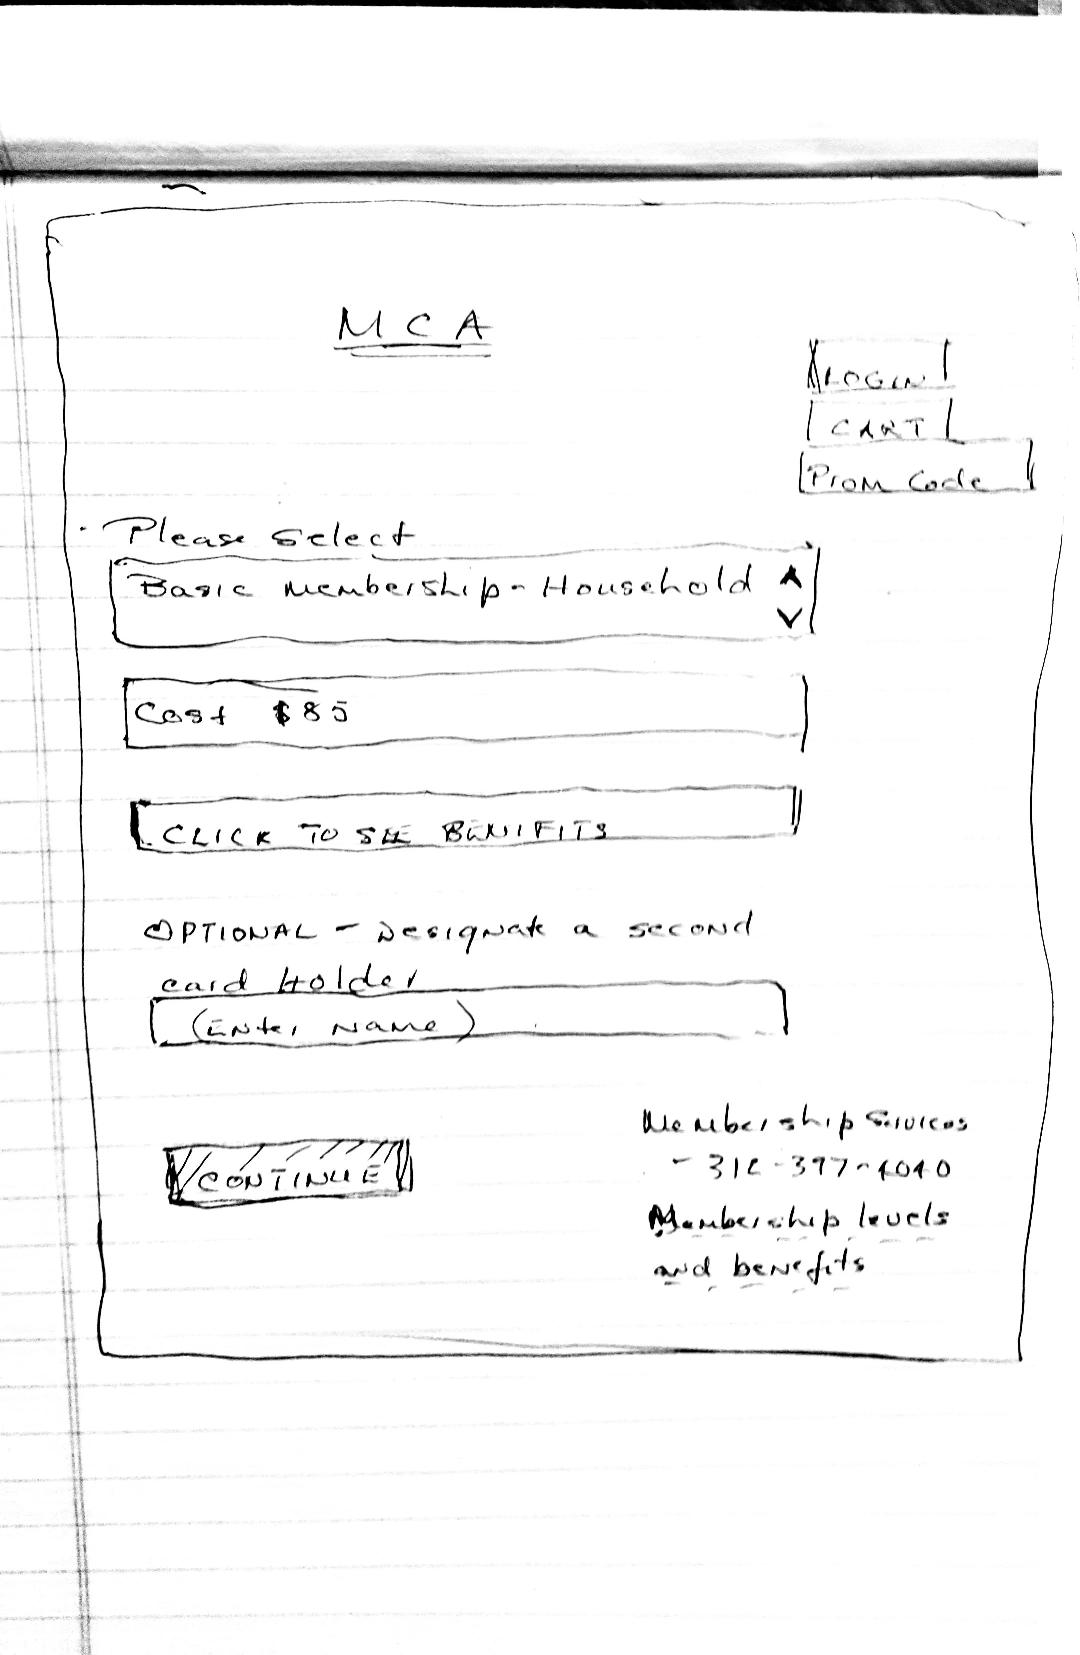 MCA
LOGIN
CART
Prom Code
Please Select
Basic Membership - Household
Cost $85
CLICK TO SEE BENIFITS
OPTIONAL - Designate a second
card Holder
(Enter Name)
CONTINUE
Membership Services
- 312-397-4040
Membership levels
and benefits